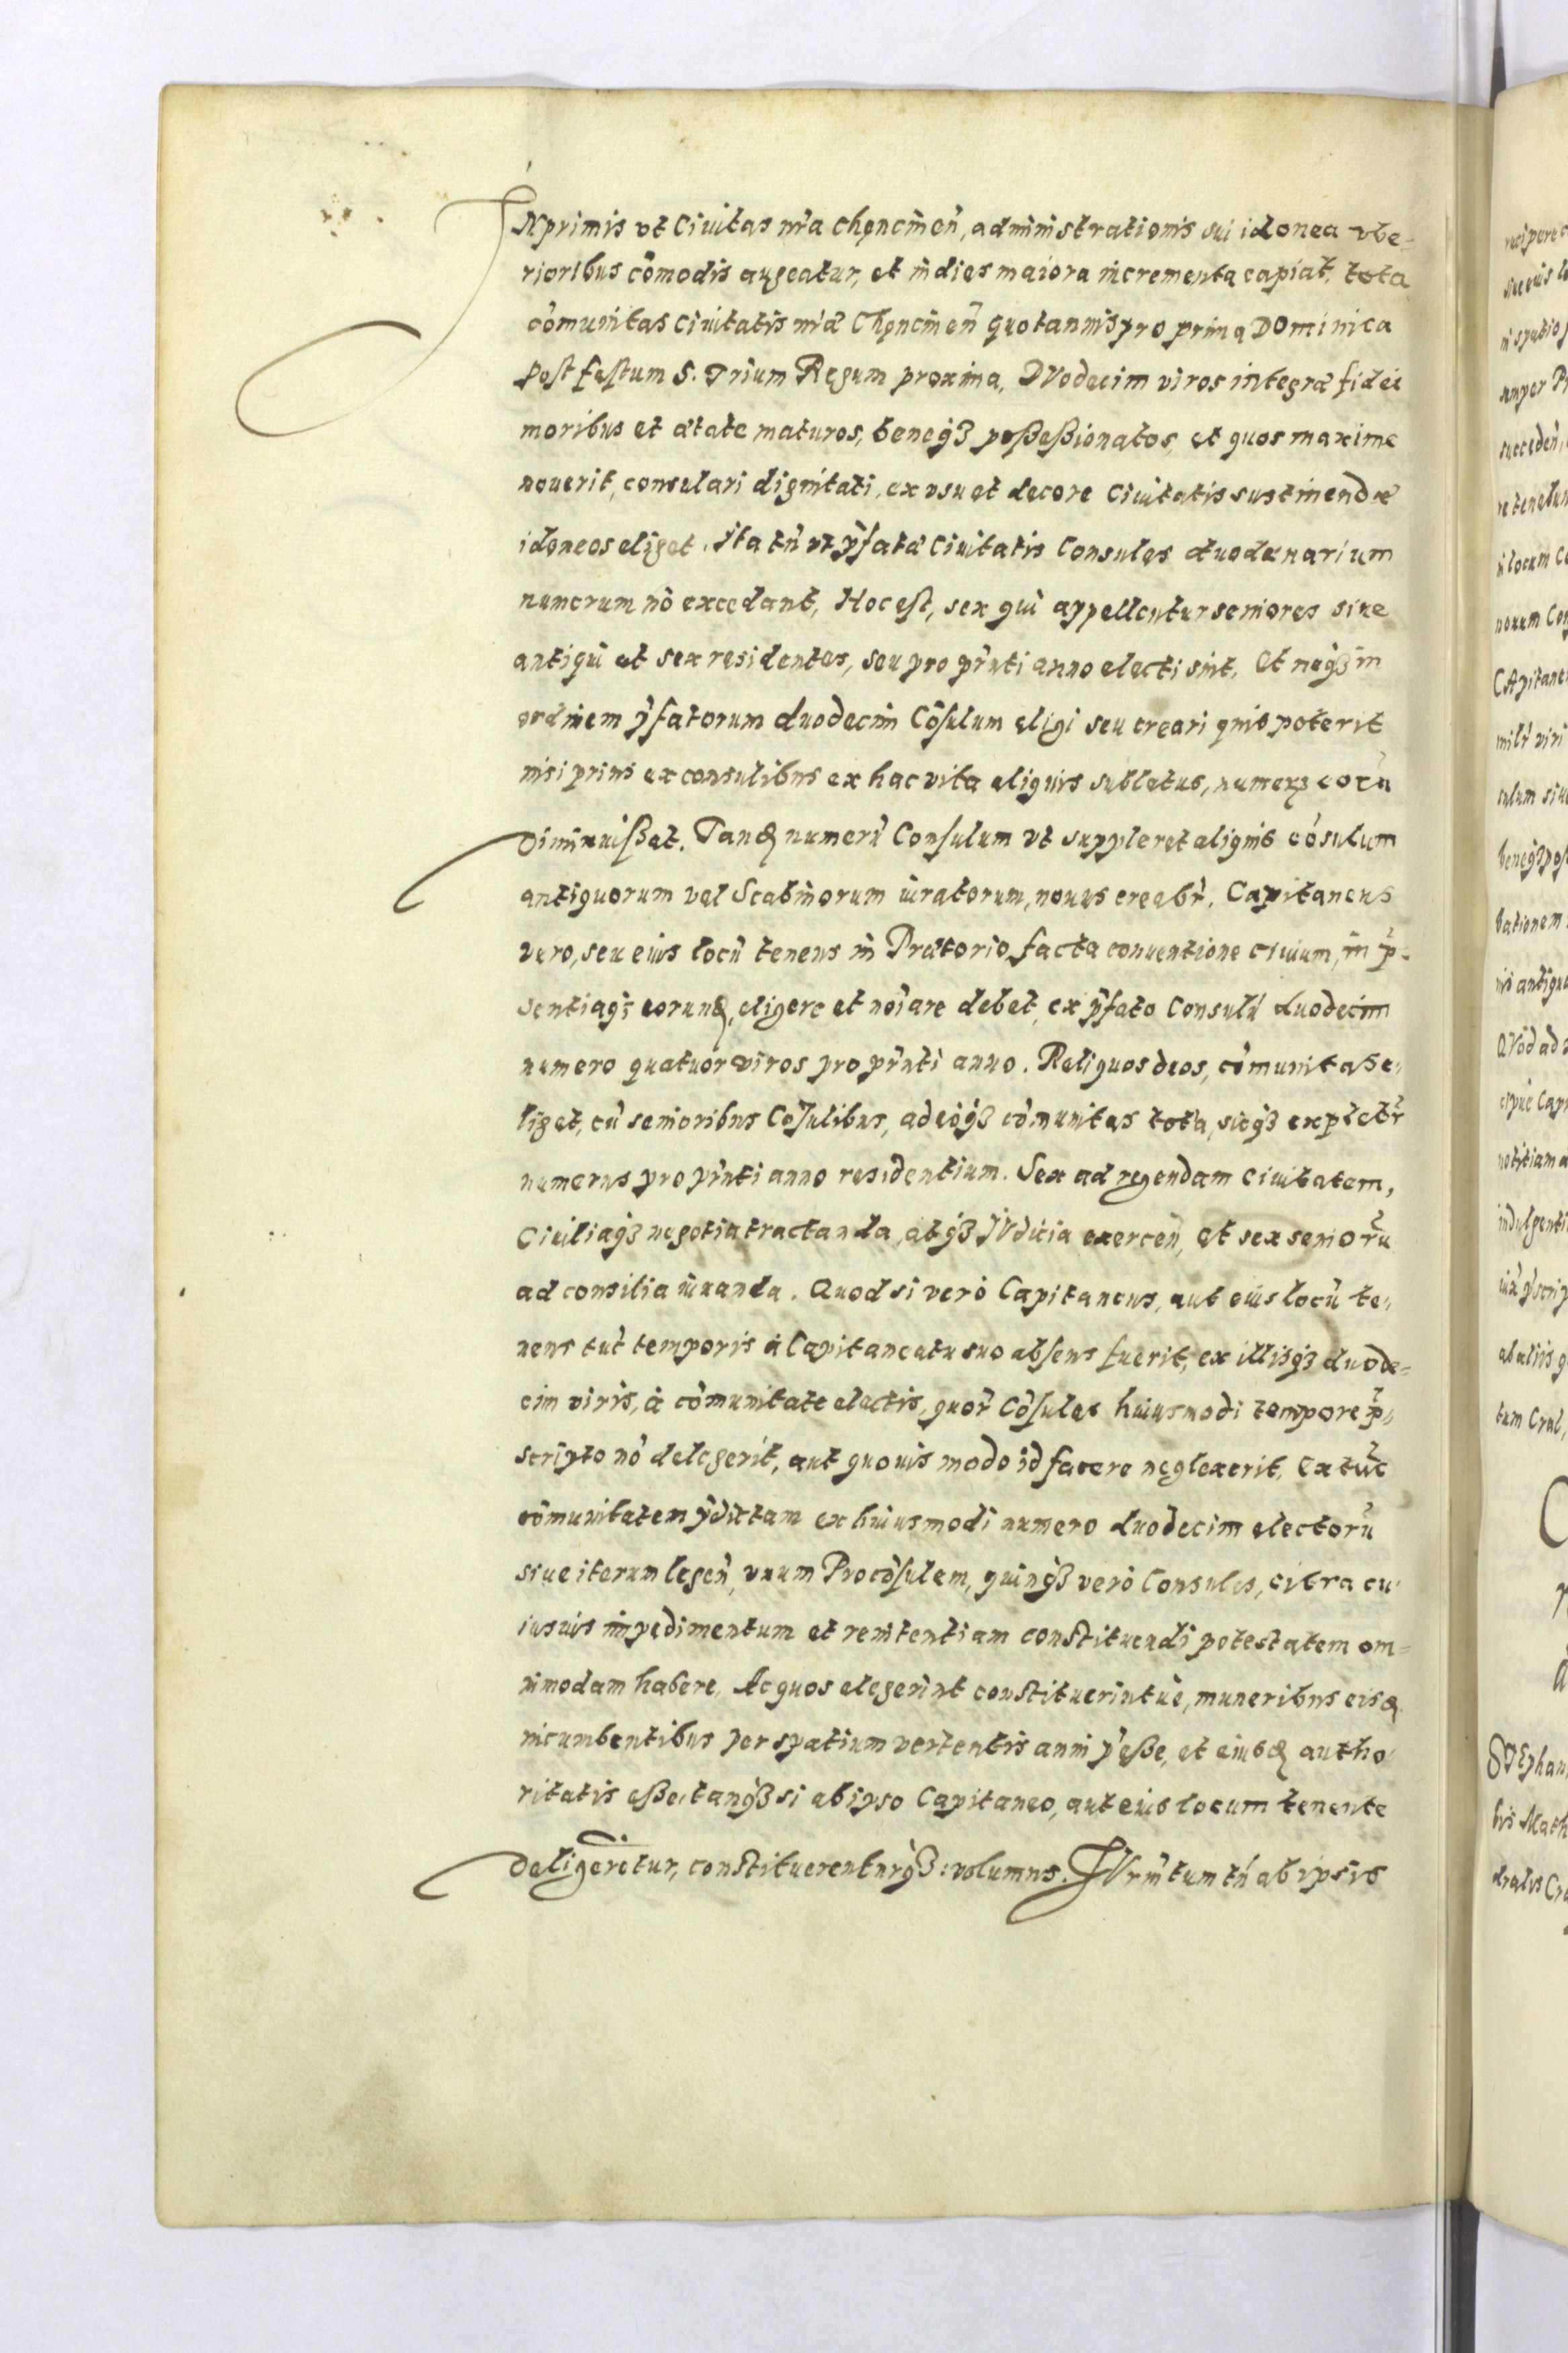 INprimis vt Ciuitas nr̃a chęncinen̄, administrationis sui idonea vbe-
rioribus cōmodis augeatur, et indies maiora incrementa capiat, tota
cōmunitas ciuitatis nr̃æ Chęncinen̄ quotannis pro prima DOminica
post festum S. Trium Regum proxima, DVodecim viros integræ fidei
moribus et ætate maturos, beneq3 poßeßionatos, et quos maxime
nouerit, consulari dignitati, ex vsu et decore ciuitatis sustinendæ
idoneos eliget. Ita tn̄ vt p̄fatæ Ciuitatis Consules duodenarium
numerum nō excedant, Hoc est, sex qui appellentur seniores siue
antiqui et sex residentes, seu pro pr̄nti anno electi sint. Et neq3 in
ordinem p̄fatorum duodecim Cōsulum eligi seu creari quis poterit
nisi prius ex consulibus ex hac vita aliquis sublatus, numerū eorū
diminuißet. Tandē numerū Consulum vt suppleret aliquis cōsulum
antiquorum vel Scabinorum iuratorum, nouus creabr̄. Capitaneus
vero, seu eius locū tenens in Prætorio, facta conuentione ciuium, in p̄-
sentiaq3 eorundē, eligere et noīare debet, ex p̄fato Consulū duodecim
numero quatuor viros pro pr̄nti anno. Reliquos duos, cōmunitas e-
liget, cū senioribus Cōsulibus, adeoq3 cōmunitas tota, sicq3 expletr̄
numerus pro pr̄nti anno residentium. Sex ad regendam ciuitatem,
Ciuiliaq3 negotia tractanda, atq3 IVdicia exercen̄, et sex seniorū
ad consilia iuuanda. Quod si vero Capitaneus, aut eius locū te-
nens tūc temporis à Capitaneatu suo absens fuerit, ex illisq3 duode-
cim viris, à cōmunitate electis, quor̄ Cōsules huiusmodi tempore p̄-
scripto nō delegerit, aut quouis modo id facere neglexerit. Ex tūc
cōmunitatem p̄dictam ex huiusmodi numero duodecim electorū
siue iterum legen̄, vnum Procōsulem, quinq3 verò Consules, citra cu-
iusuis impedimentum et renitentiam constituendi potestatem om-
nimodam habere. Ac quos elegerint constituerintue, muneribus eisdē
incumbentibus per spatium vertentis anni p̄eße, et eiusdē autho-
ritatis eße, tanq3 si ab ipso Capitaneo, aut eius locum tenente
deligeretur, constituerenturq3: volumus. IVrm̄tum tn̄ ab ipsis